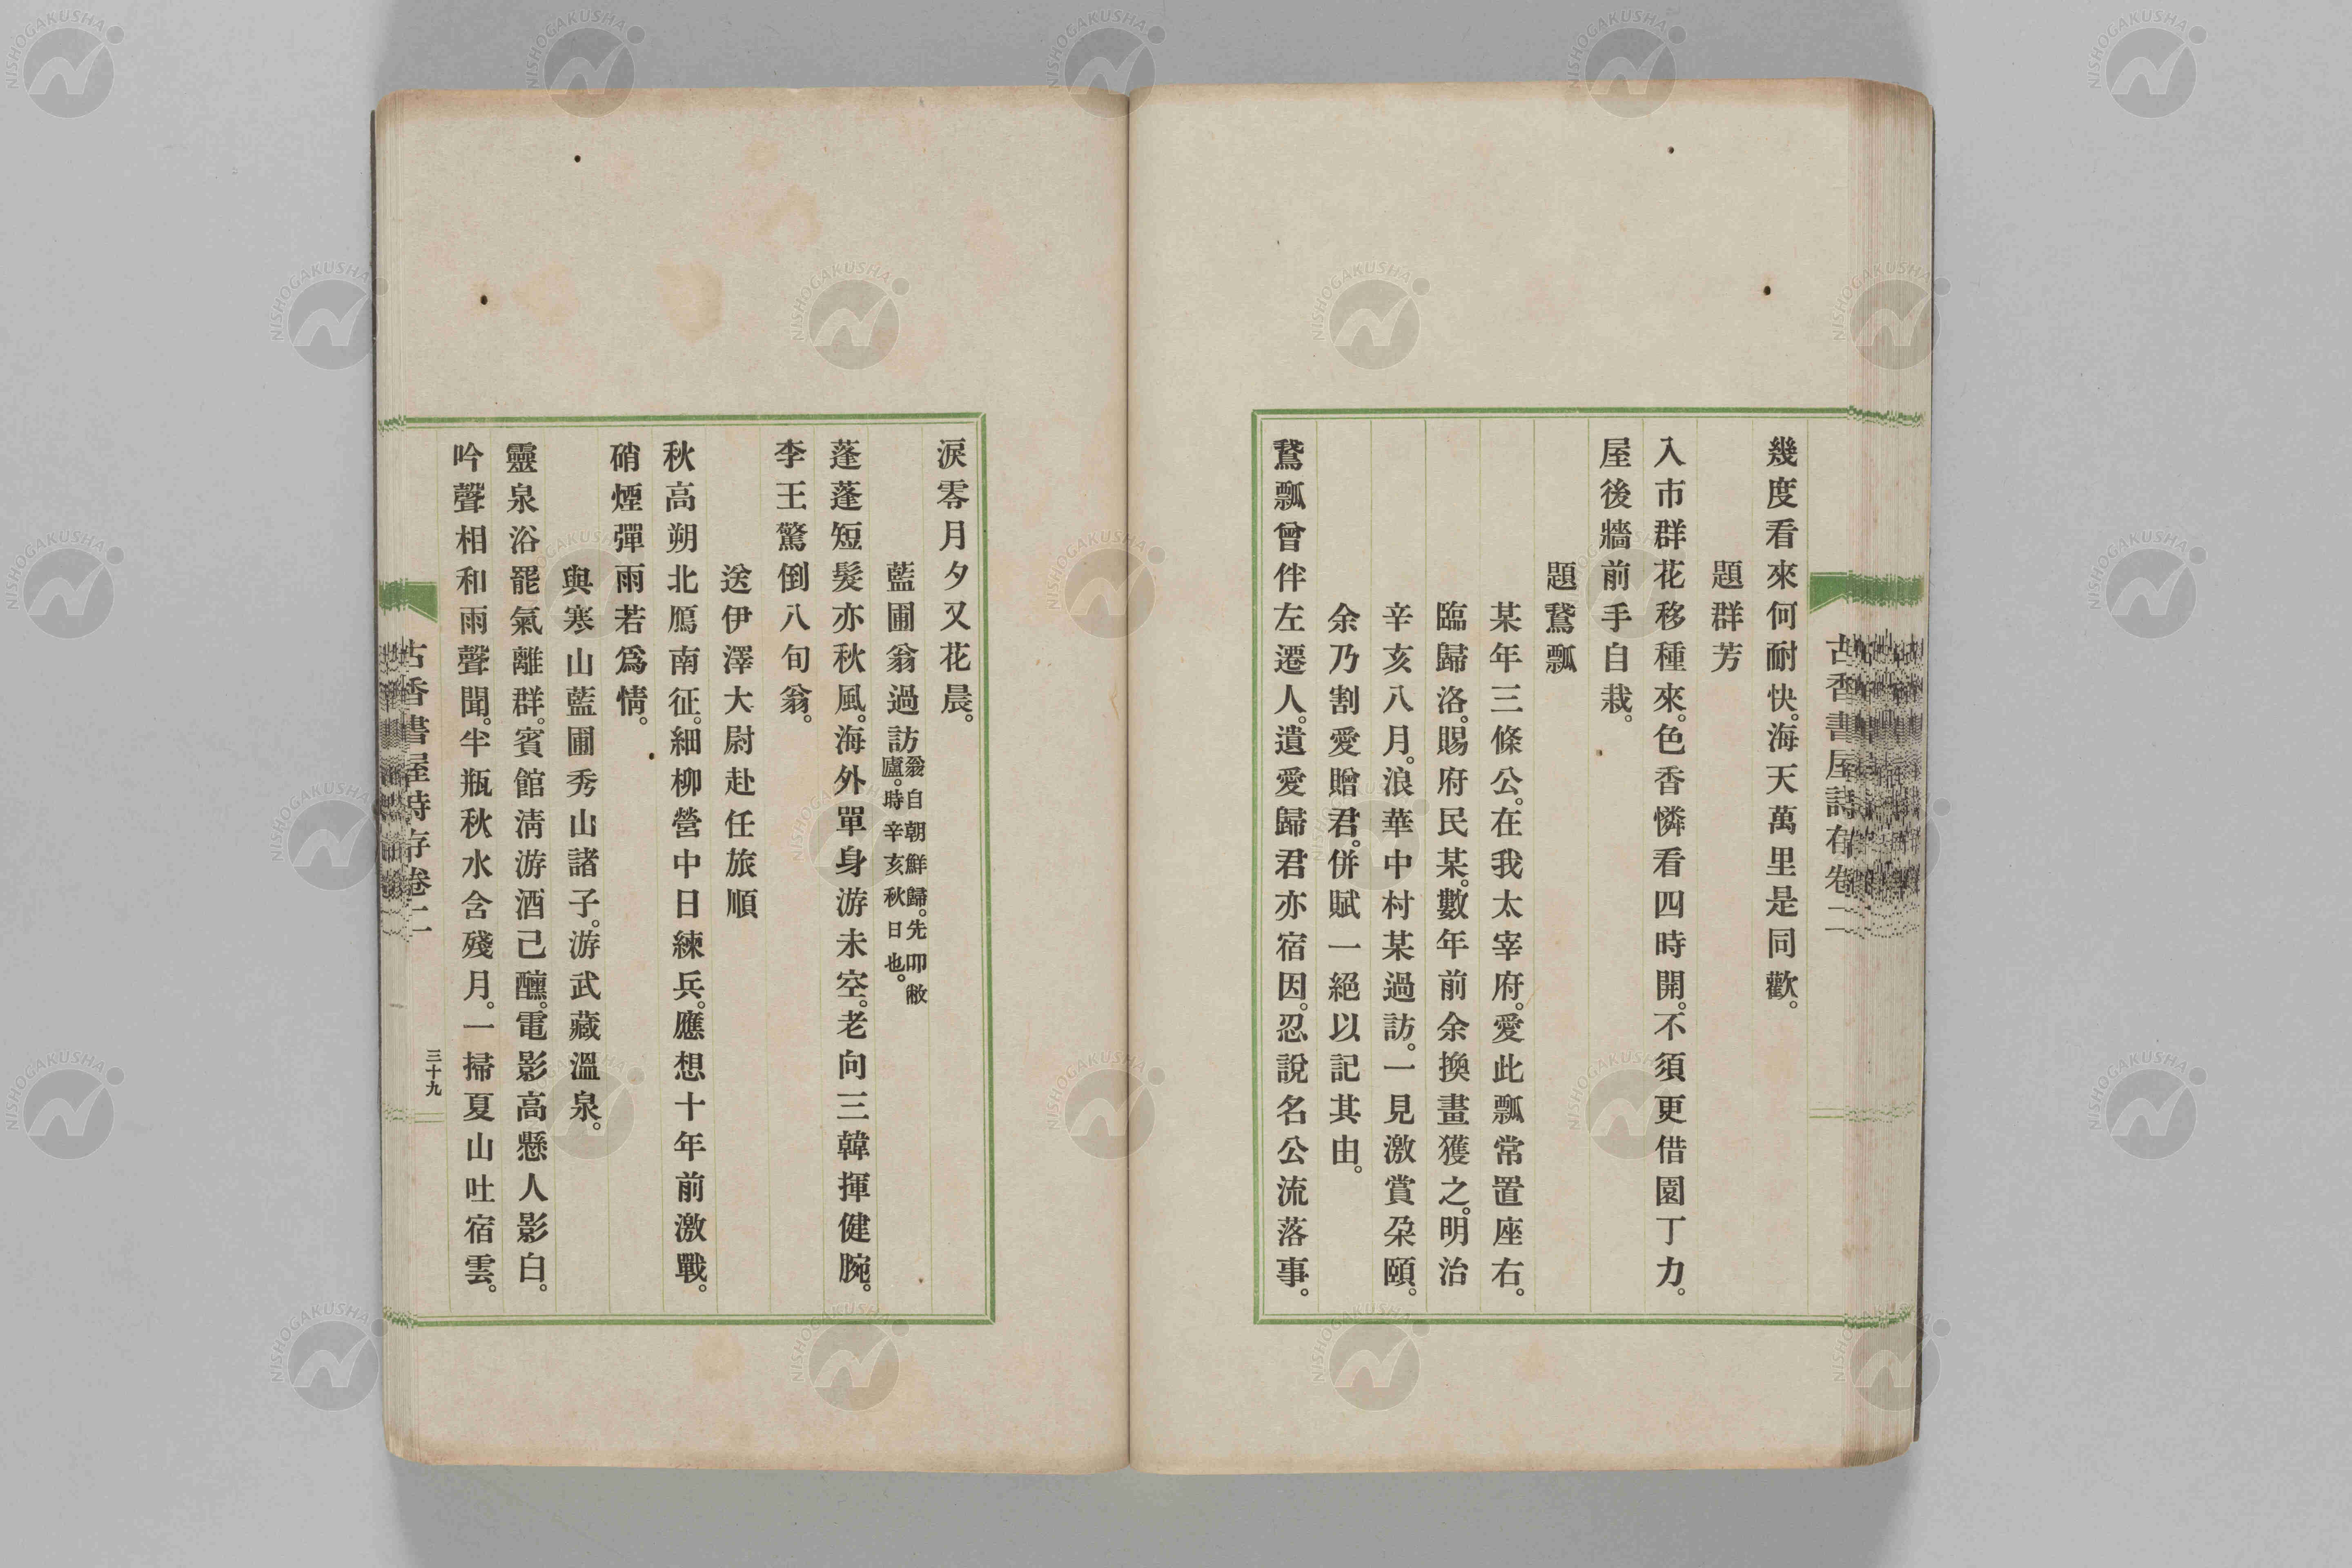 古香書屋詩存卷二
幾度看來何耐快。海天萬里是同歡。
題群芳
入市群花移種來。色香憐看四時開。不須更借園丁力。
屋後牆前手自栽。
題鵞瓢
某年三條公。在我太宰府。愛此瓢常置座右。
臨歸洛。賜府民某。數年前余換畫獲之。明治
辛亥八月。浪華中村某過訪。一見激賞朶頤。
余乃割愛贈君。併賦一絕以記其由。
鵞瓢曾伴左遷人。遺愛歸君亦宿因。忍說名公流落事。
淚零月夕又花晨。
藍圃翁過訪翁自朝鮮歸。先叩敝
廬。時辛亥秋日也。
蓬蓬短髮亦秋風。海外單身游未空。老向三韓揮健腕。
李王驚倒八旬翁。
送伊澤大尉赴任旅順
秋高朔北鴈南征。細柳營中日練兵。應想十年前激戰。
硝煙彈雨若爲情。
與寒山藍圃秀山諸子。游武藏溫泉。
靈泉浴罷氣離群。賓館淸游酒已醺。電影高懸人影白。
吟聲相和雨聲聞。半瓶秋水含殘月。一掃夏山吐宿雲。
古香書屋詩存卷二
三十九
NISHOGAKUSHA